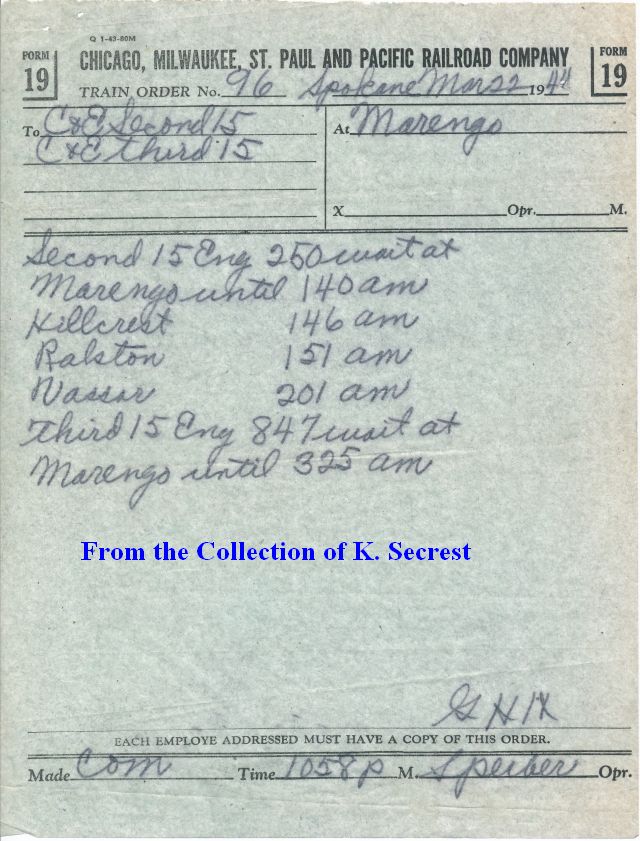 Q 1-43-80M
FORM 19
CHICAGO, MILWAUKEE, ST. PAUL AND PACIFIC RAILROAD COMPANY
FORM 19
TRAIN ORDER No. 96 Spokane Mar 22 1944
To C&E Second 15
C&E third 15
At Marengo
X Opr. M.
Second 15 Eng 250 wait at
Marengo until 140 am
Hillcrest 146 am
Ralston 151 am
Vassar 201 am
Third 15 Eng 847 wait at
Marengo until 325 am
From the Collection of K. Secrest
EACH EMPLOYE ADDRESSED MUST HAVE A COPY OF THIS ORDER.
Made Com Time 1058 p M. Speiber Opr.